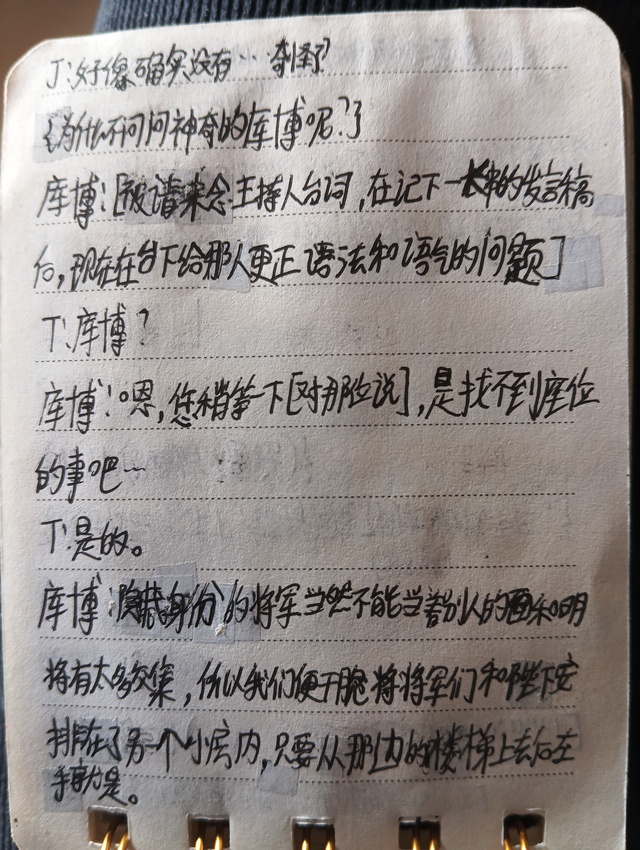 J:好像确实没有… 奇怪?
{为什么不问问神奇的库博呢?}
库博:[被请来念主持人台词,在记下一长串的发言稿
后,现在在台下给那人更正语法和语气的问题]
T:库博?
库博:嗯,您稍等一下[对那位说],是找不到座位
的事吧…
T:是的。
库博:隐藏身份的将军当然不能当着别人的面和明
将有太多交集,所以我们便干脆将将军们和陛下安
排在了另一个小房内,只要从那边的楼梯上去后左
手就是。